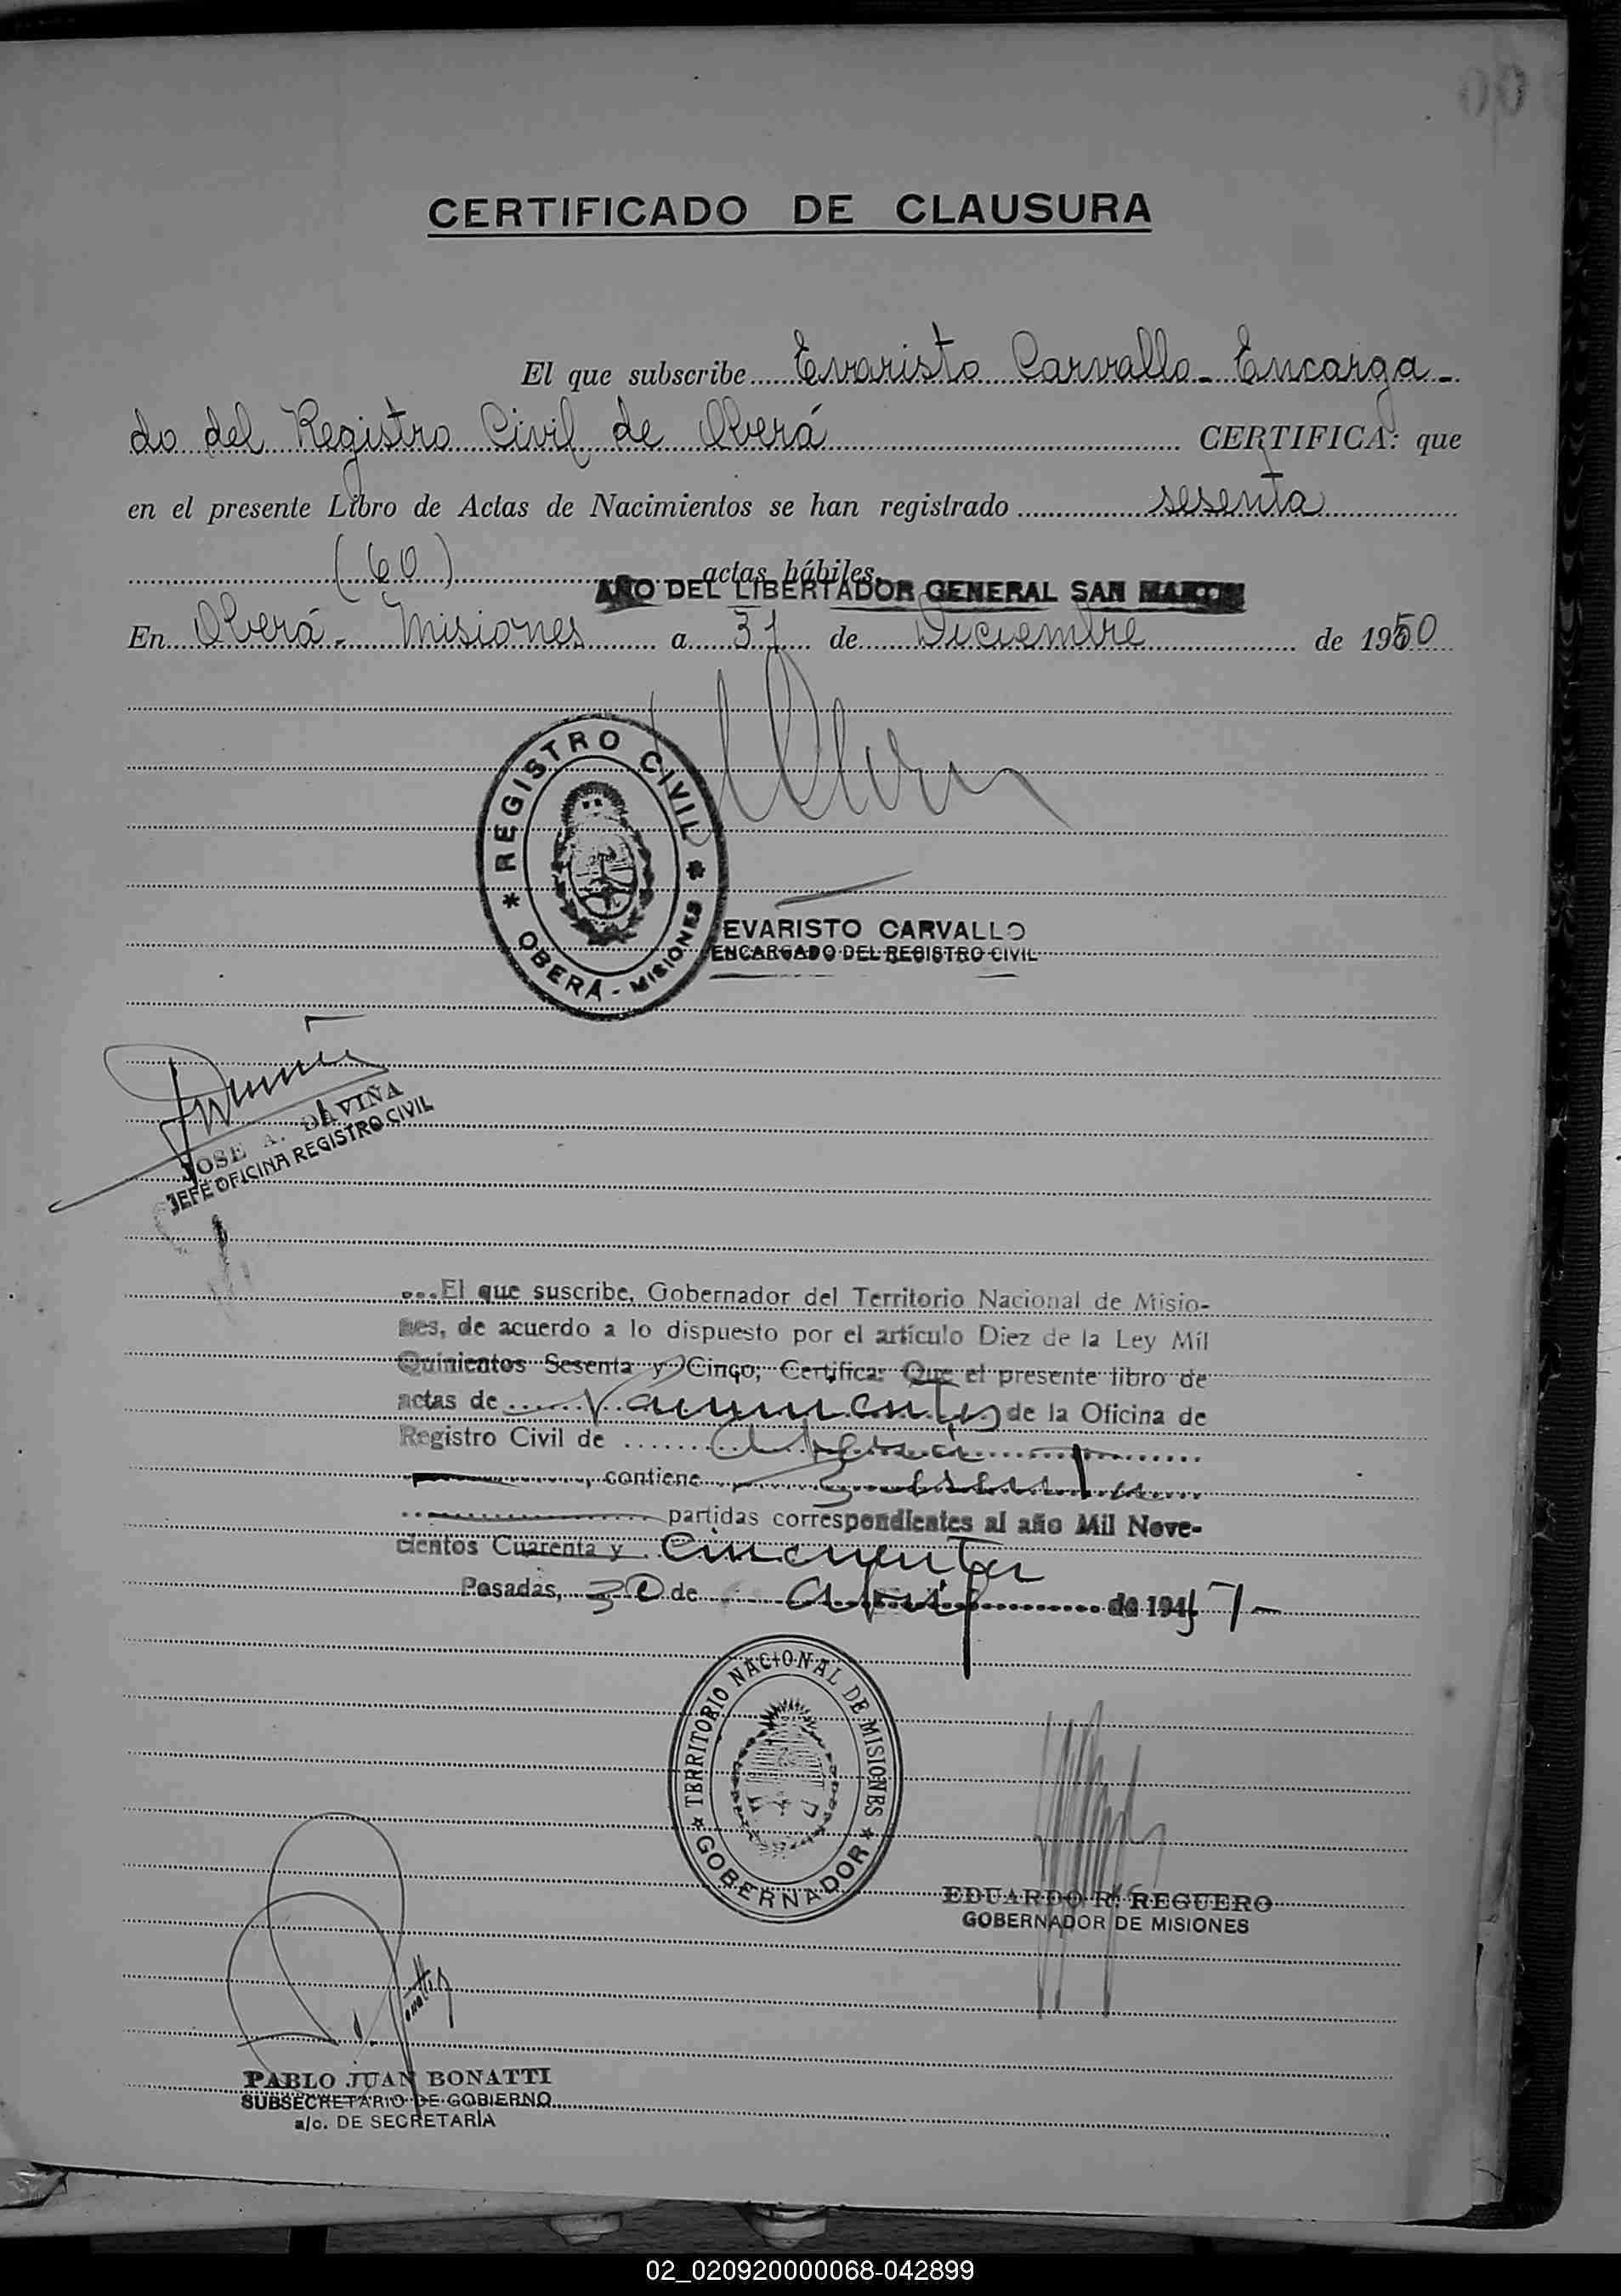 CERTIFICADO DE CLAUSURA
El que subscribe Evaristo Carvallo - Encarga -
do del Registro Civil de Oberá CERTIFICA: que
en el presente Libro de Actas de Nacimientos se han registrado sesenta
(60) actas hábiles.
AÑO DEL LIBERTADOR GENERAL SAN MARTIN
En Oberá - Misiones a 31 de Diciembre de 1950
REGISTRO CIVIL
* OBERÁ - MISIONES *
EVARISTO CARVALLO
ENCARGADO DEL REGISTRO CIVIL
JOSE A. DAVIÑA
JEFE OFICINA REGISTRO CIVIL
...El que suscribe, Gobernador del Territorio Nacional de Misio-
nes, de acuerdo a lo dispuesto por el artículo Diez de la Ley Mil
Quinientos Sesenta y Cinco, Certifica: Que el presente libro de
actas de Nacimientos de la Oficina de
Registro Civil de Oberá
, contiene sesenta
partidas correspondientes al año Mil Nove-
cientos Cuarenta y Cincuenta
Posadas, 30 de abril de 1951 -
TERRITORIO NACIONAL DE MISIONES
* GOBERNADOR *
EDUARDO R. REGUERO
GOBERNADOR DE MISIONES
PABLO JUAN BONATTI
SUBSECRETARIO DE GOBIERNO
a/c. DE SECRETARÍA
02_020920000068-042899